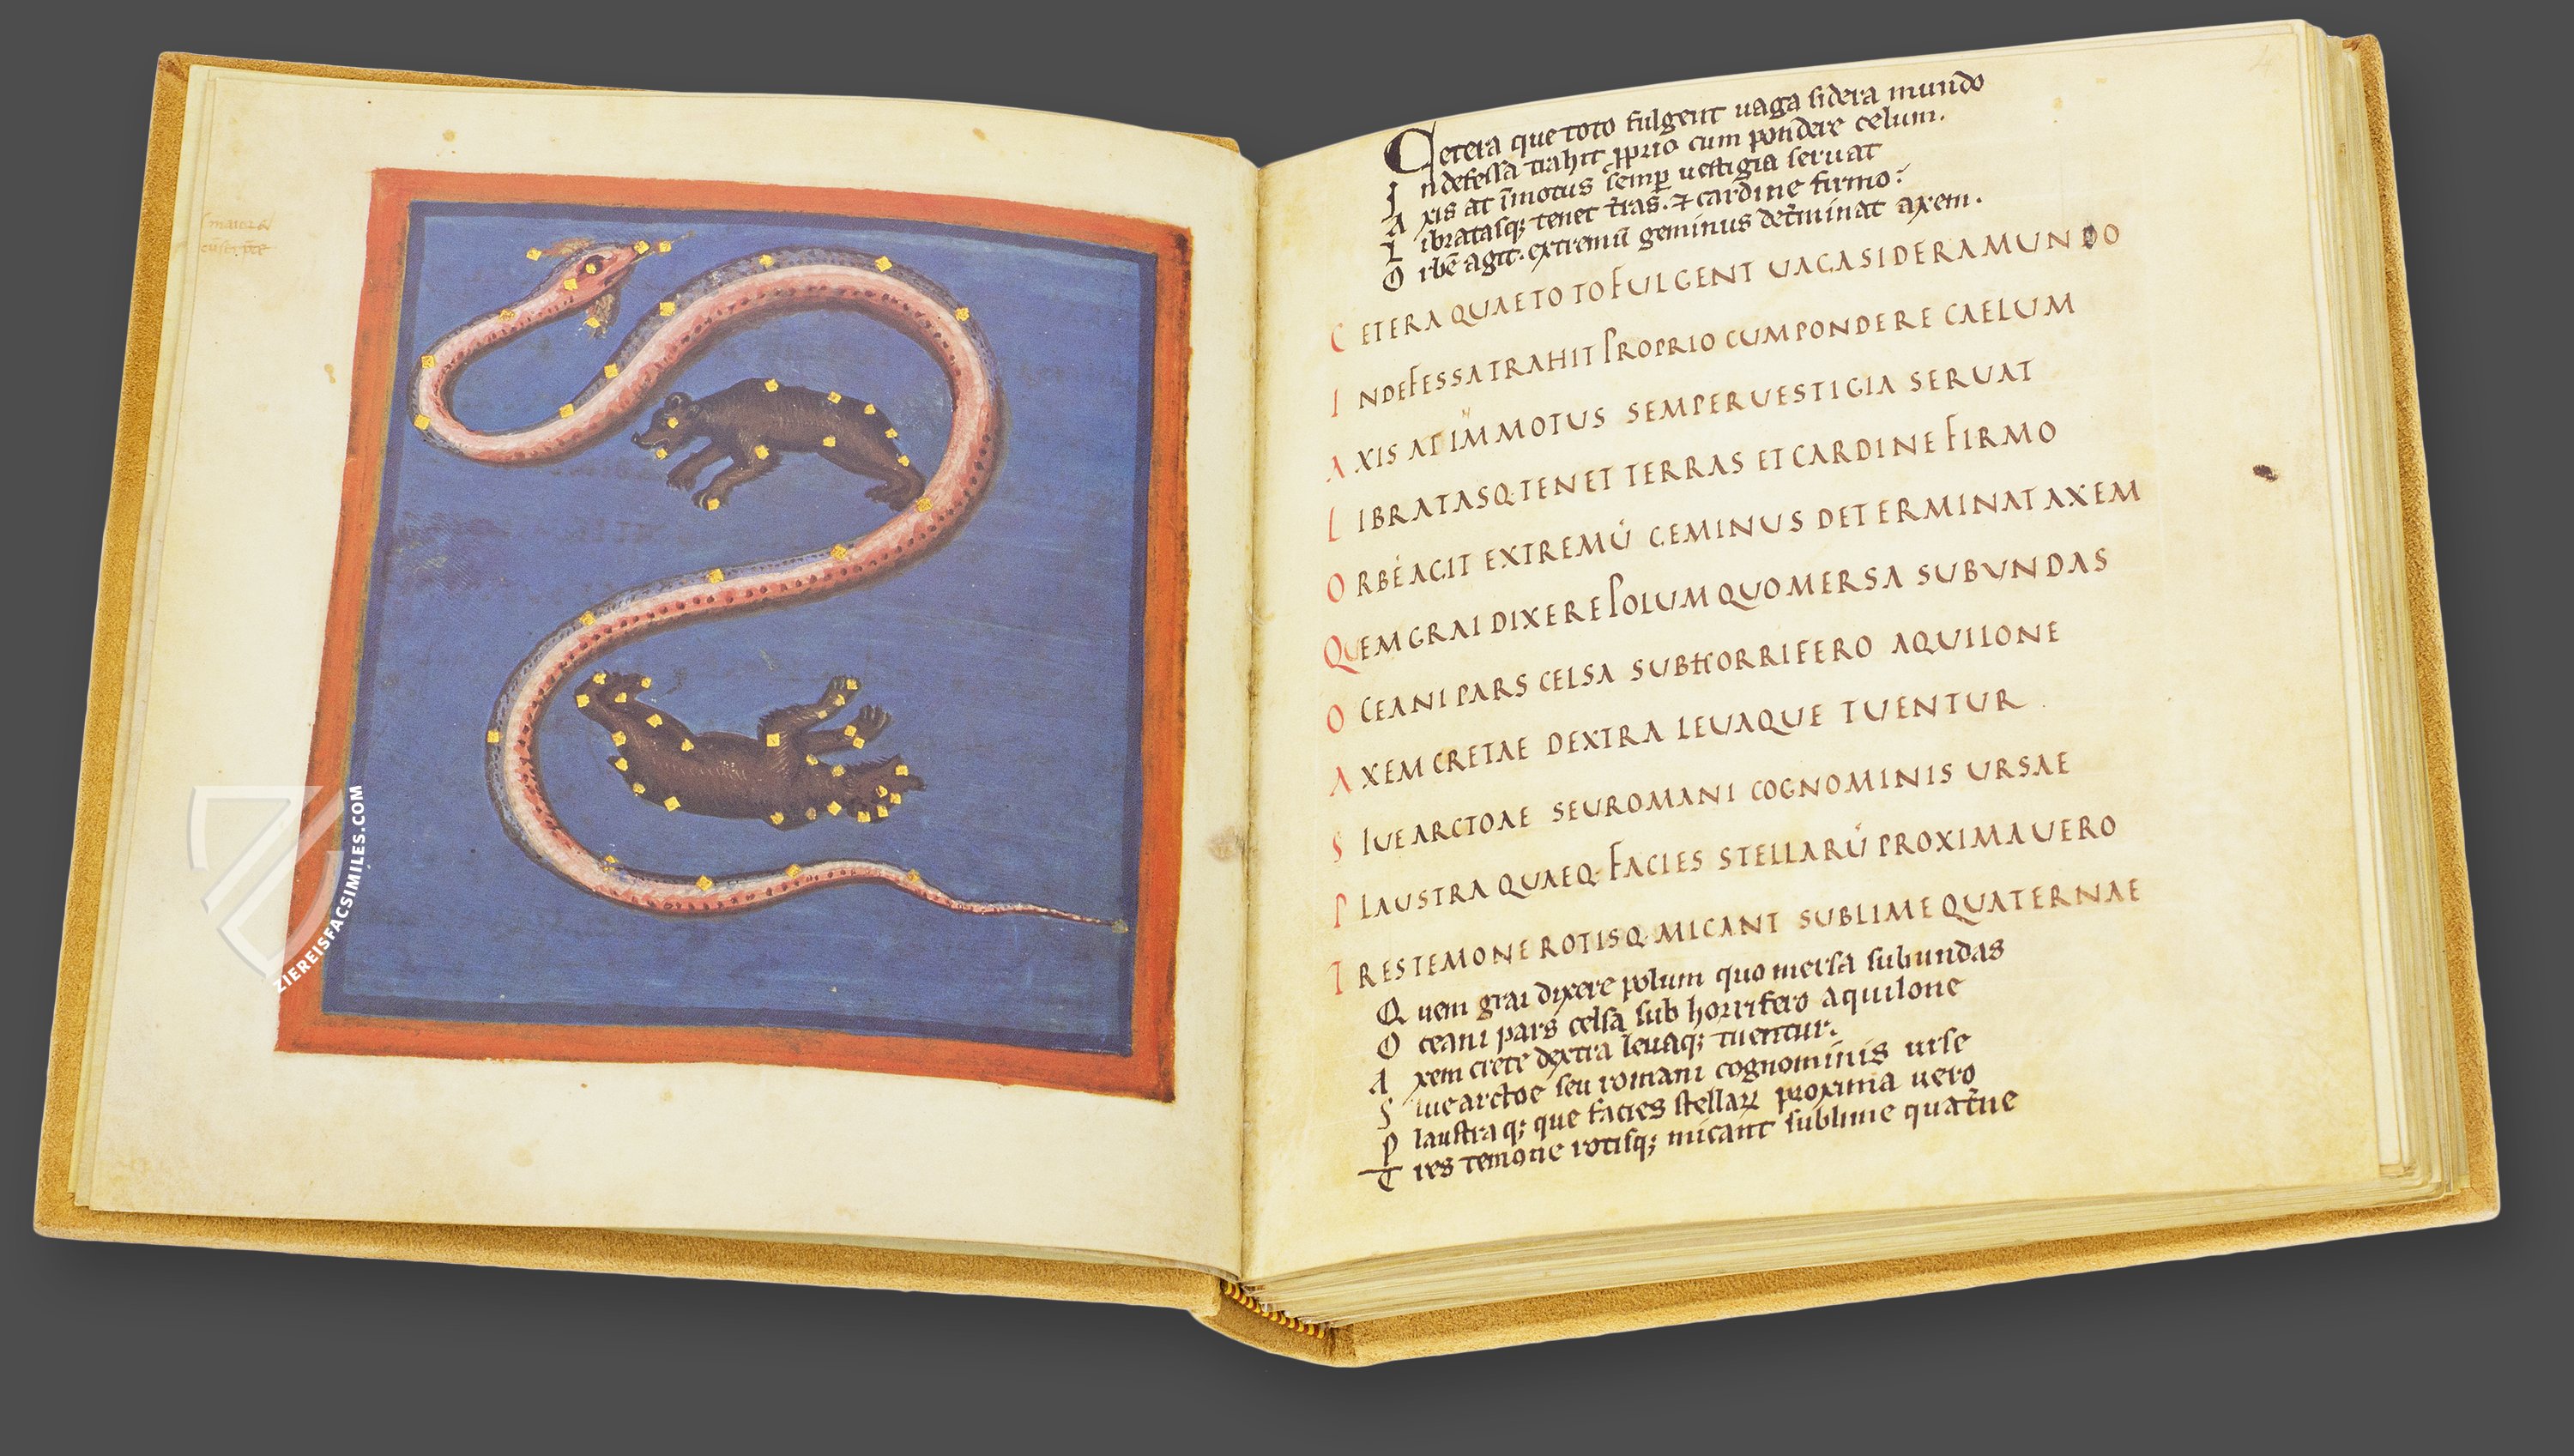 maior &
ZIEREISFACSIMILES.COM
4
Cetera que toto fulgent uaga sidera mundo
Indefessa trahit ꝓprio cum pondere celum.
Axis at īmotus semꝑ uestigia seruat
Libratasqꝫ tenet t̄ras. ⁊ cardine firmo:
Orbē agit. extremū geminus det̄minat axem.
CETERA QUAE TOTO FULGENT UAGA SIDERA MUNDO
INDEFESSA TRAHIT PROPRIO CUM PONDERE CAELUM
AXIS AT IMMOTUS SEMPER UESTIGIA SERUAT
LIBRATASQ· TENET TERRAS ET CARDINE FIRMO
ORBĒ AGIT EXTREMŪ GEMINUS DETERMINAT AXEM
QUEM GRAI DIXERE POLUM QUO MERSA SUB UNDAS
OCEANI PARS CELSA SUB HORRIFERO AQUILONE
AXEM CRETAE DEXTRA LEUAQUE TUENTUR
SIUE ARCTOAE SEU ROMANI COGNOMINIS URSAE
PLAUSTRA QUAEQ· FACIES STELLARŪ PROXIMA UERO
TRES TEMONE ROTISQ· MICANT SUBLIME QUATERNAE
Quem grai dixere polum quo mersa sub undas
Oceani pars celsa sub horrifero aquilone
Axem crete dextra leuaqꝫ tuentur.
Siue arctoe seu romani cognominis urse
Plaustra qꝫ que facies stellaꝝ proxima uero
Tres temone rotisqꝫ micant sublime quat̄ne